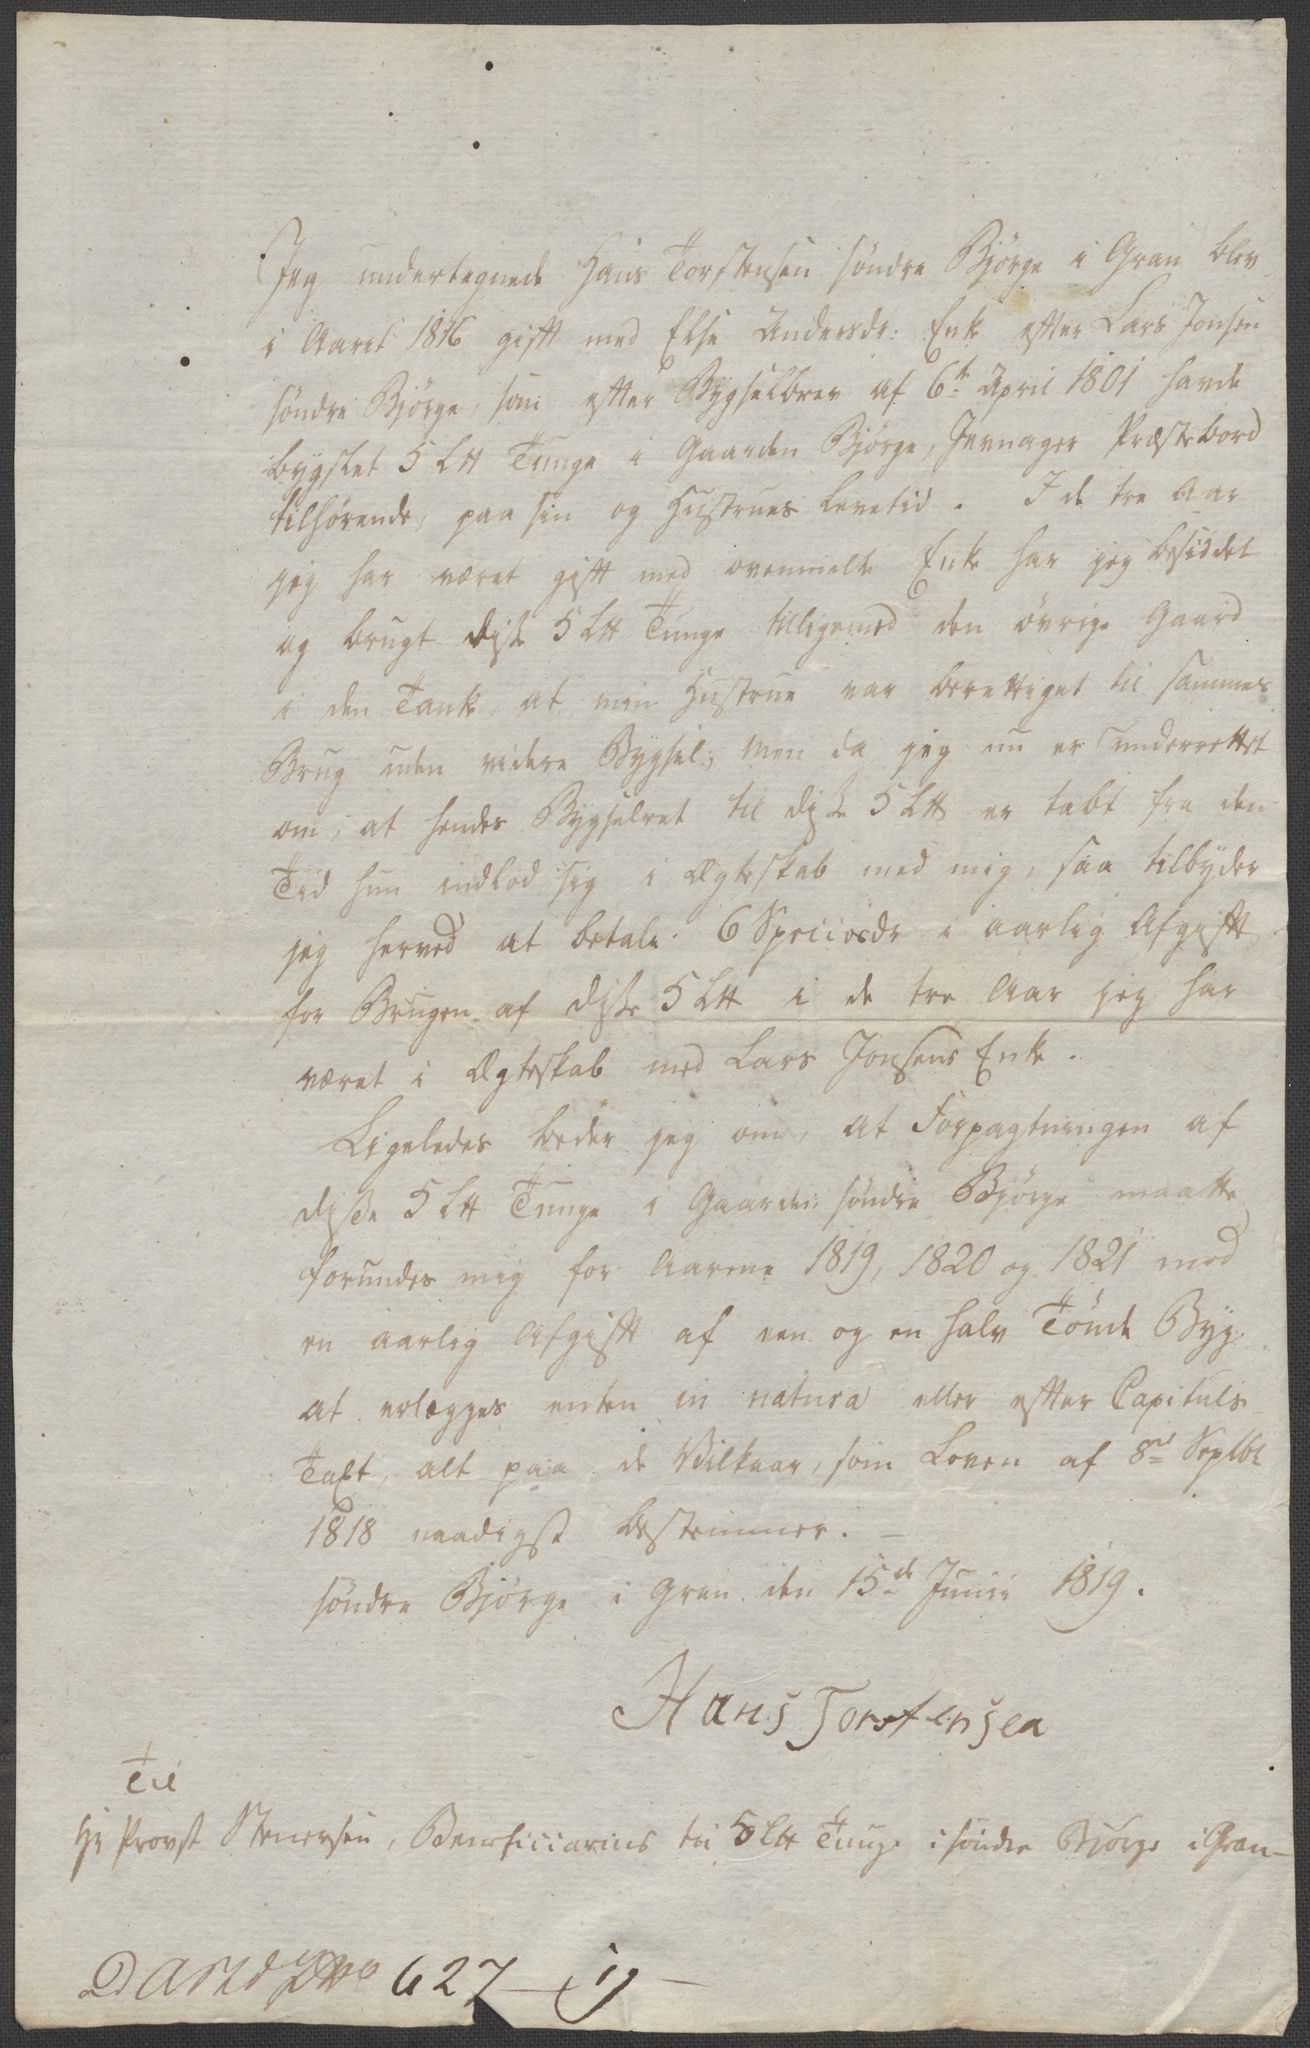 Jeg undertegnede Hans Torstensen søndre Bjørge i Gran blev
i Aaret 1816 gift med Else Andersdr: Enke efter Lars Jonsen
søndre Bjørge, som efter Bygselbrev af 6te April 1801 havde
bygslet 5 Ltt Tunge i Gaarden Bjørge, Jevnager Præstebord
tilhørende, paa sin og Hustrues Levetid. I de tre Aar
jeg har været gift med ovenmelte Enke har jeg besiddet
og brugt disse 5 Ltt Tunge tilligemed den øvrige Gaard
i den Tanke, at min Hustrue var berettiget til sammes
Brug uden videre Bygsel; men da jeg nu er underrettet
om, at hendes Bygselret til disse 5 Ltt er tabt fra den
Tid hun indlod sig i Ægteskab med mig, saa tilbyder
jeg herved at betale 6 Speciesdr i aarlig Afgift
for Brugen af disse 5 Ltt i de tre Aar jeg har
været i Ægteskab med Lars Jonsens Enke.
Ligeledes beder jeg om, at Forpagtningen af
disse 5 Ltt Tunge i Gaarden søndre Bjørge maatte
forundes mig for Aarene 1819, 1820 og 1821 mod
en aarlig Afgift af een og en halv Tønde Byg
at erlægges enten in natura eller efter Capituls-
Taxt, alt paa de Vilkaar, som Loven af 8de Septbr
1818 naadigst bestemmer. —
søndre Bjørge i Gran den 15de Junii 1819.
Hans Torstensen
Til
Hr Provst Stenersen, Beneficiarius til 5 Ltt Tunge i søndre Bjørge i Gran—
627 — 19 —